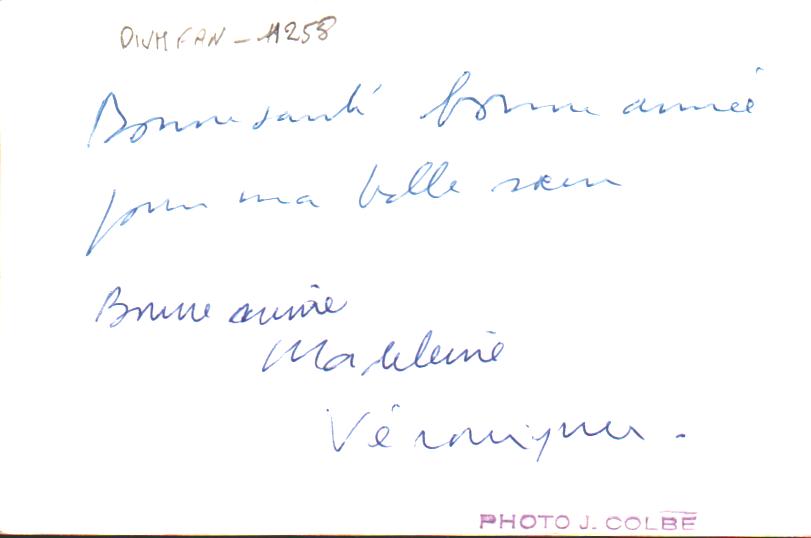 DIVM FAN - 11258
Bonne santé bonne année
pour ma belle sœur
Bonne année
Madeleine
Véronique.
PHOTO J. COLBE